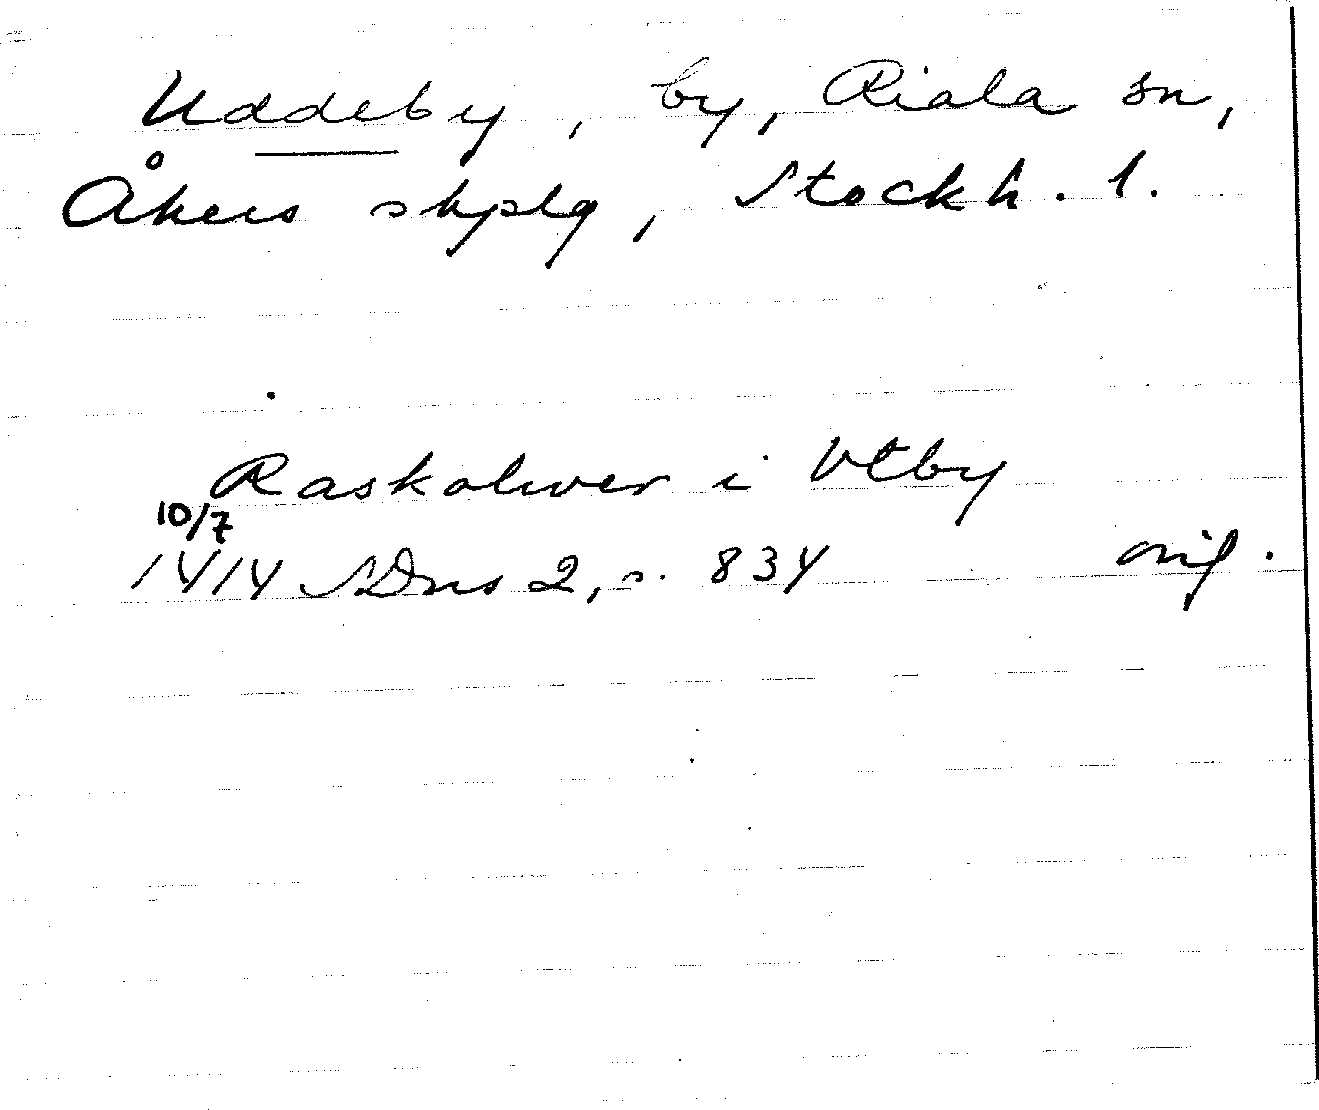 Uddeby, by, Riala sn,
Åkers skplg, Stockh. l.
Raskolwer i Vtby
10/7
1414 SDns 2, s. 834 orig.